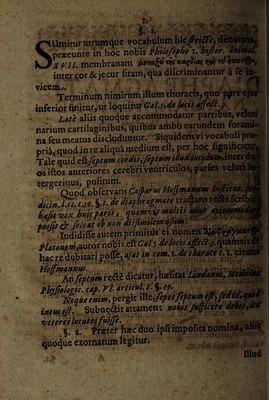 §. 1.
Sumitur utrumque vocabulum hic strictè, denotans,
præeunte in hoc nobis Philosopho 1. histor. animal.
XVII. membranam μεταξὺ τῆς καρδίας καὶ τοῦ ἥπατος,
inter cor & jecur sitam, qua discriminantur à se in-
vicem.
Terminum nimirum illum thoracis, quo pars ejus
inferior finitur, ut loquitur Gal. 5. de locis affect.
Latè aliis quoque accommodatur partibus, veluti
narium cartilaginibus, quibus ambo earundem forami-
na seu meatus discluduntur. Siquidem ex vocabuli pro-
priâ, quod in re aliqua medium est, per hoc significatur.
Tale quid est septum cordis, septum illud lucidum, inter du-
os istos anteriores cerebri ventriculos, parses veluti in-
tergerinus, positum.
Quod observans Casparus Hoffmannus Institut. Me-
dicin. lib. c. 30. §. 1. de diaphragmate tractans rectè scribit
hasce vox huic parti, quamvis multis aliis accommodari
possit & soleat ob non dissimilem usum:
Indidisse autem primitus ei nomen
Platonem, autor nobis est Gal. 5. de locis affect. quamvis de
hac re dubitari posse, ajat in com. de thorace c. citatus
Hoffmannus.
An septum rectè dicatur, hæsitat Lindanus, Medicinæ
Physiologic. cap. VI. articul. §. 59.
Neque enim, pergit ille, sepes septum est, sed id, quod
intus est. Subnectit attamen: nobis sufficere debet, ita
veteres locutos fuisse.
§. 2. Præter hæc duo ipsi imposita nomina, aliis
quoque exornatum legitur.
Illud